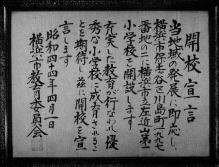 開校宣言
当地域の発展に即応し
横浜市旭区川島町一八七
番地の二に横浜市立左近山第一
小学校を開設します
充実した教育が行なわれ優
秀な小学校に成育されるこ
とを期待し茲に開校を宣
言します
昭和四十四年四月一日
横浜市教育委員会